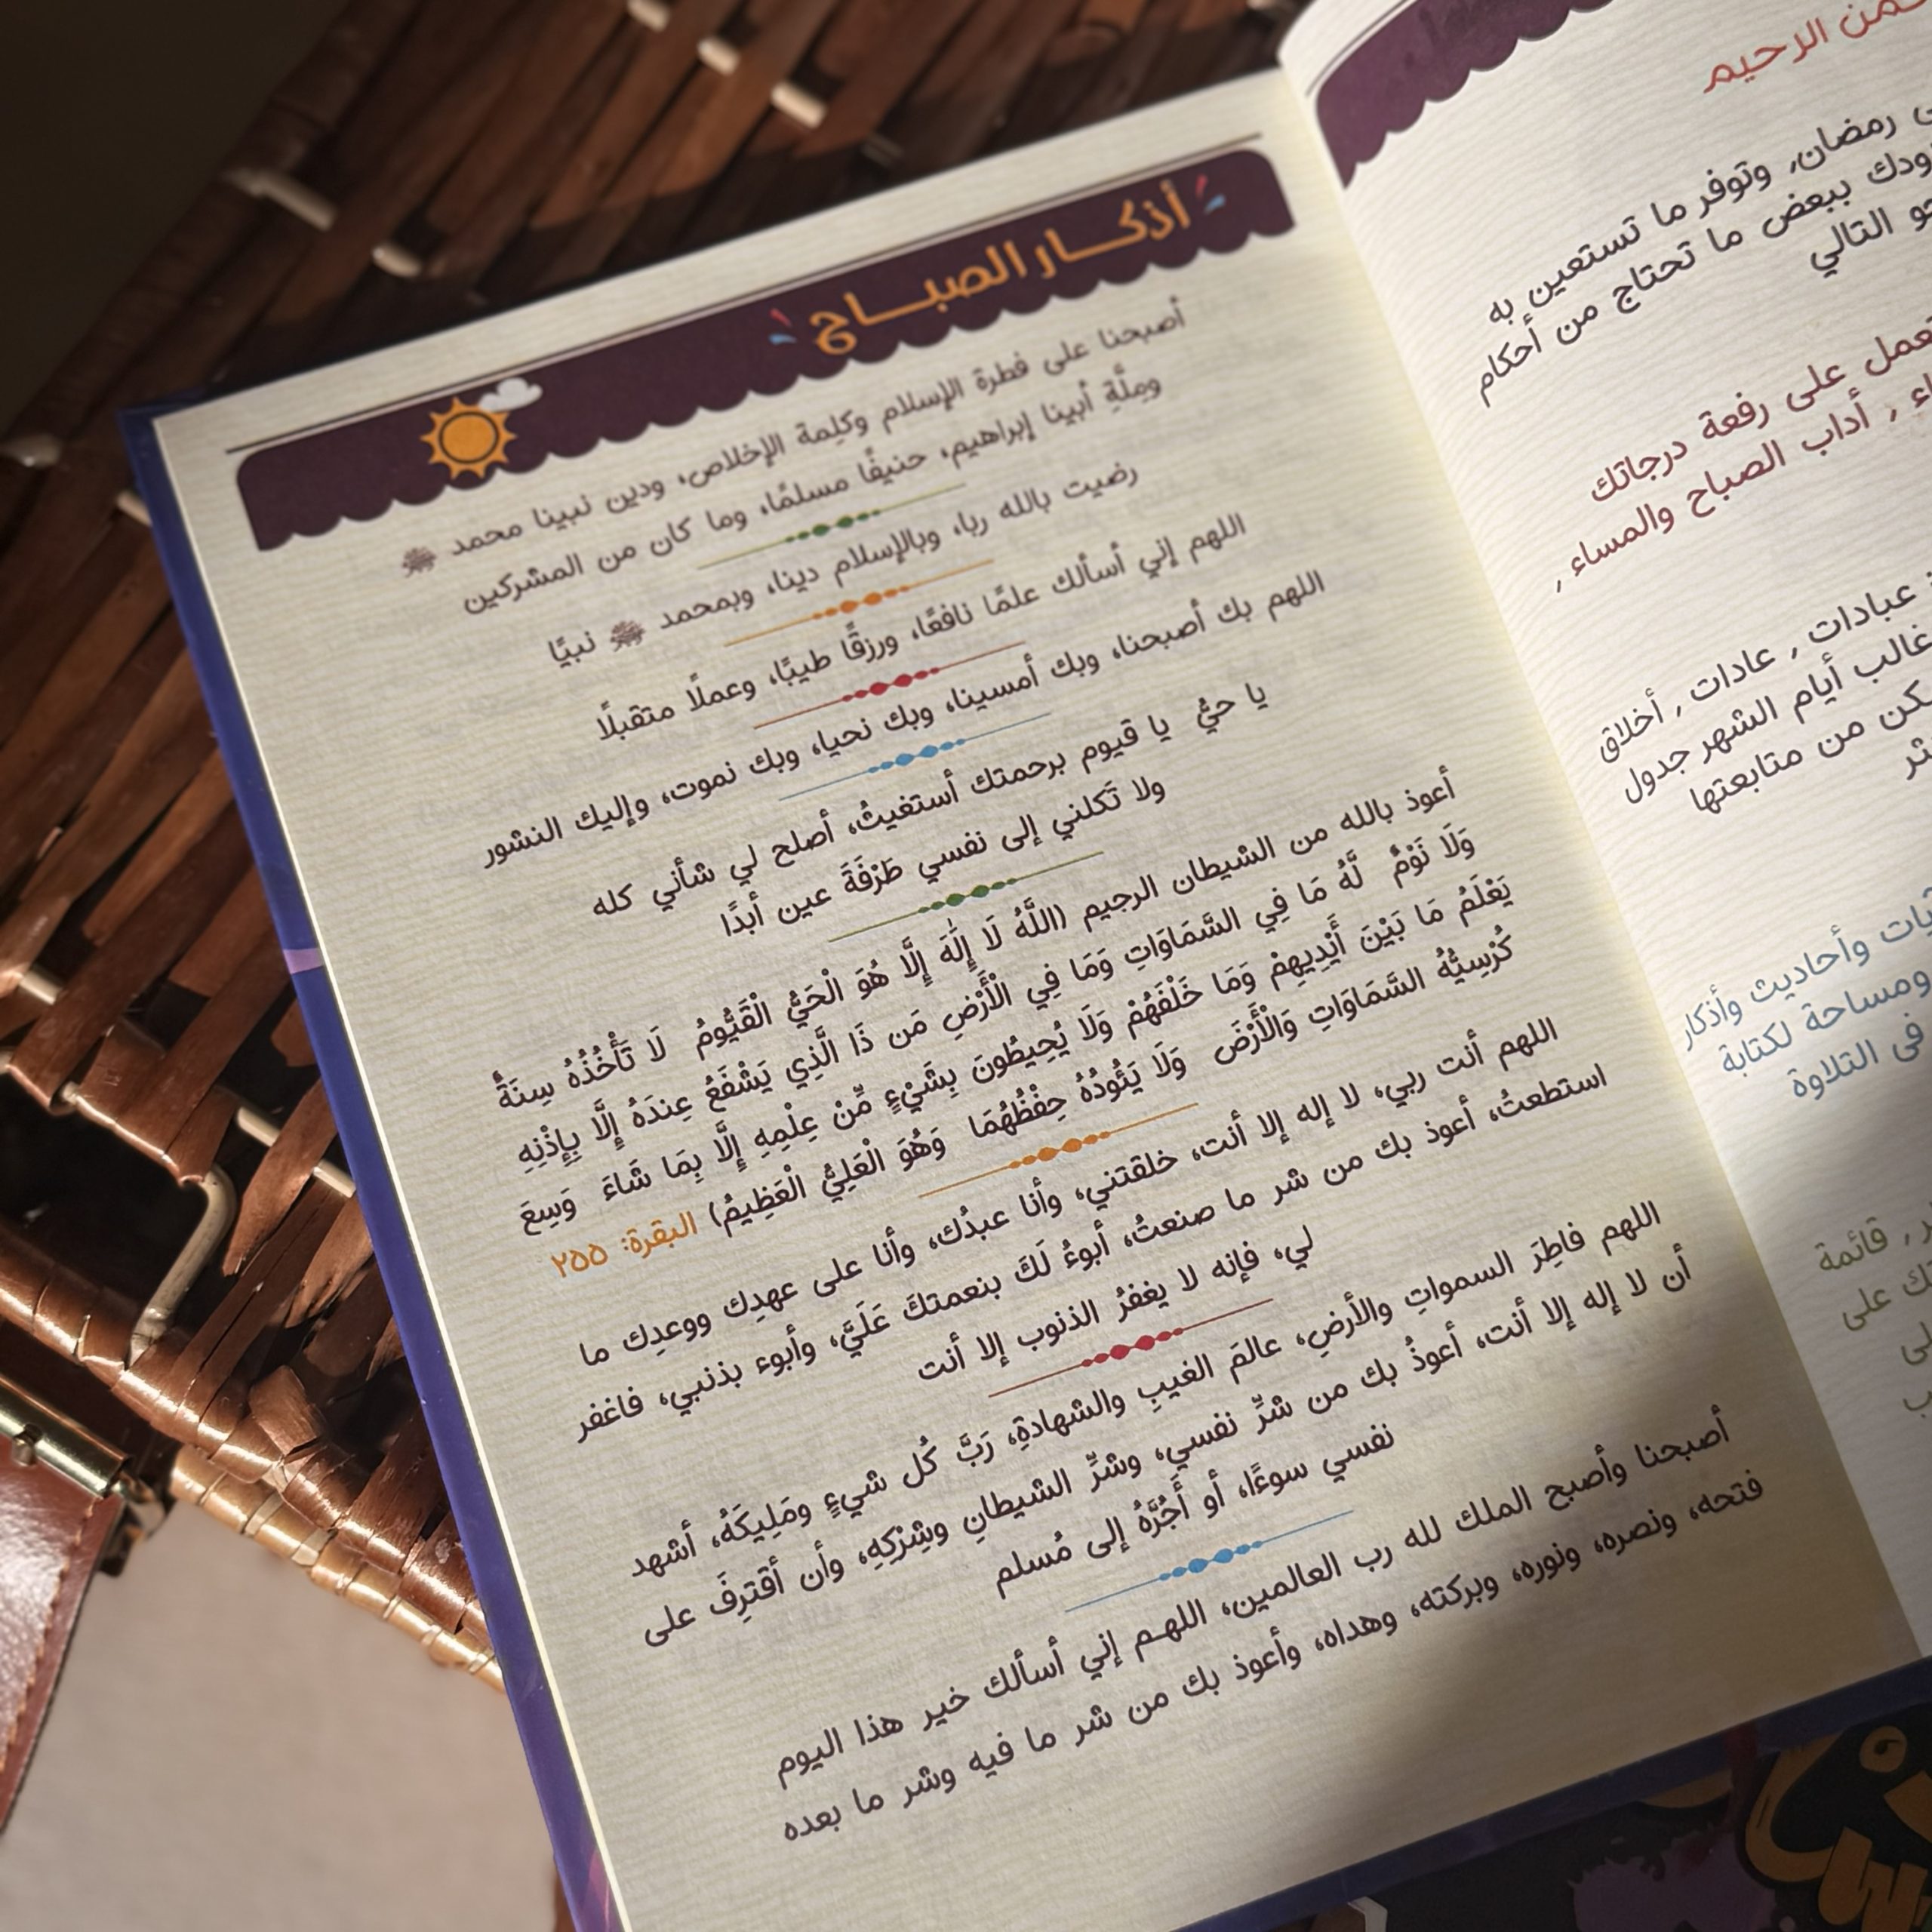 أذكـــار الصبـــاح
أصبحنا على فطرة الإسلام وكلِمة الإخلاص، ودين نبينا محمد ﷺ
ومِلَّةِ أبينا إبراهيم، حنيفًا مسلمًا، وما كان من المشركين
رضيت بالله ربا، وبالإسلام دينا، وبمحمد ﷺ نبيًا
اللهم إني أسألك علمًا نافعًا، ورزقًا طيبًا، وعملًا متقبلًا
اللهم بك أصبحنا، وبك أمسينا، وبك نحيا، وبك نموت، وإليك النشور
يا حيُّ يا قيوم برحمتك أستغيثُ، أصلح لي شأني كله
ولا تَكلني إلى نفسي طَرْفَةَ عين أبدًا
أعوذ بالله من الشيطان الرجيم (اللَّهُ لَا إِلَٰهَ إِلَّا هُوَ الْحَيُّ الْقَيُّومُ لَا تَأْخُذُهُ سِنَةٌ
وَلَا نَوْمٌ لَّهُ مَا فِي السَّمَاوَاتِ وَمَا فِي الْأَرْضِ مَن ذَا الَّذِي يَشْفَعُ عِندَهُ إِلَّا بِإِذْنِهِ
يَعْلَمُ مَا بَيْنَ أَيْدِيهِمْ وَمَا خَلْفَهُمْ وَلَا يُحِيطُونَ بِشَيْءٍ مِّنْ عِلْمِهِ إِلَّا بِمَا شَاءَ وَسِعَ
كُرْسِيُّهُ السَّمَاوَاتِ وَالْأَرْضَ وَلَا يَئُودُهُ حِفْظُهُمَا وَهُوَ الْعَلِيُّ الْعَظِيمُ) البقرة: ٢٥٥
اللهم أنت ربي، لا إله إلا أنت، خلقتني، وأنا عبدُك، وأنا على عهدِك ووعدِك ما
استطعتُ، أعوذ بك من شر ما صنعتُ، أبوءُ لَكَ بنعمتكَ عَلَيَّ، وأبوء بذنبي، فاغفر
لي، فإنه لا يغفرُ الذنوب إلا أنت
اللهم فاطِرَ السمواتِ والأرضِ، عالمَ الغيبِ والشهادةِ، رَبَّ كُل شيءٍ ومَلِيكَهُ، أشهد
أن لا إله إلا أنت، أعوذُ بك من شرِّ نفسي، وشرِّ الشيطانِ وشِرْكِهِ، وأن أقترِفَ على
نفسي سوءًا، أو أَجُرَّهُ إلى مُسلم
أصبحنا وأصبح الملك لله رب العالمين، اللهم إني أسألك خير هذا اليوم
فتحه، ونصره، ونوره، وبركته، وهداه، وأعوذ بك من شر ما فيه وشر ما بعده
الرحيم
رمضان, وتوفر ما تستعين به
ببعض ما تحتاج من أحكام
التالي
على رفعة درجاتك
, أداب الصباح والمساء ,
عبادات , عادات , أخلاق
غالب أيام الشهر جدول
من متابعتها
وأحاديث وأذكار
ومساحة لكتابة
فى التلاوة
, قائمة
على